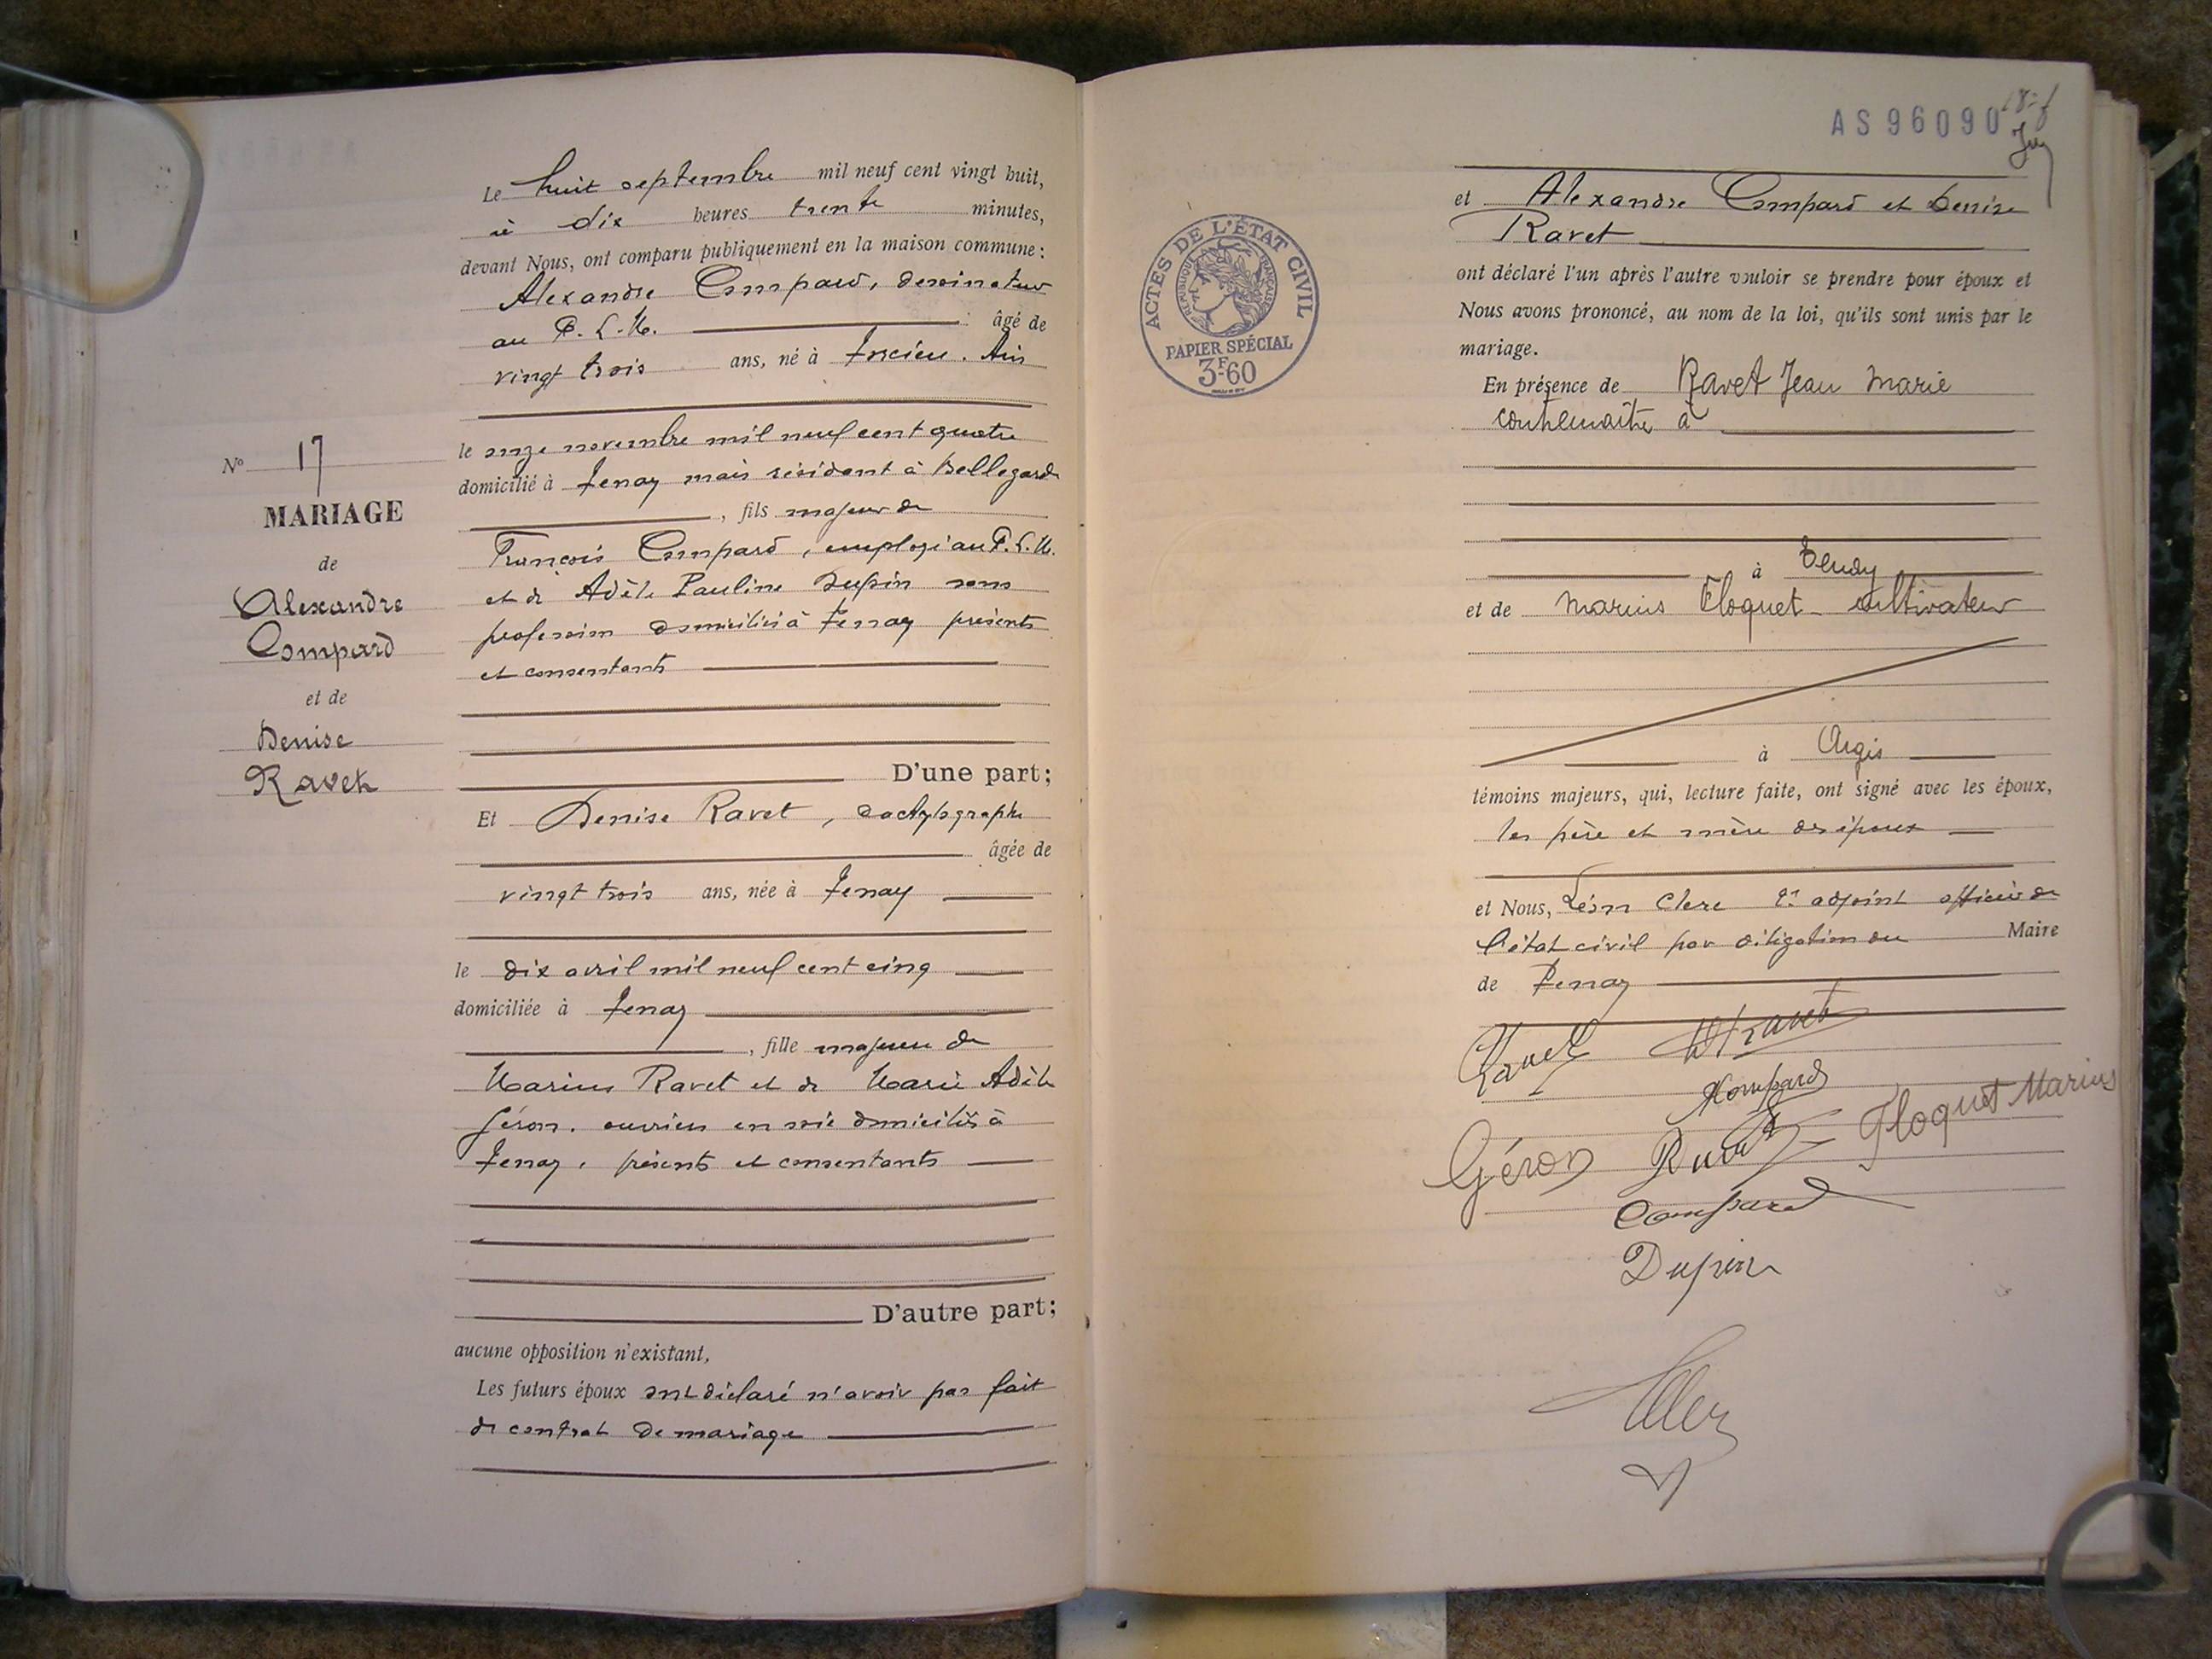 Le huit septembre mil neuf cent vingt huit,
à dix heures trente minutes,
devant Nous, ont comparu publiquement en la maison commune :
Alexandre Compard, dessinateur
au P. L. M. âgé de
vingt trois ans, né à Ain
le onze novembre mil neuf cent quatre
domicilié à Tenay mais résidant à Bellegarde
, fils majeur de
François Compard, employé au P. L. M.
et de Adèle Pauline Dupin sans
profession domiciliés à Tenay présents
et consentants
D'une part ;
N° 17
MARIAGE
de
Alexandre
Compard
et de
Denise
Ravet
Et Denise Ravet, dactylographe
âgée de
vingt trois ans, née à Tenay
le dix avril mil neuf cent cinq
domiciliée à Tenay
, fille majeure de
Marius Ravet et de Marie Adèle
Géron. ouvriers en soie domiciliés à
Tenay, présents et consentants
D'autre part ;
aucune opposition n'existant,
Les futurs époux ont déclaré n'avoir pas fait
de contrat de mariage
AS96090
et Alexandre Compard et Denise
Ravet
ACTES DE L'ÉTAT CIVIL
RÉPUBLIQUE FRANÇAISE
PAPIER SPÉCIAL
3F-60
ont déclaré l'un après l'autre vouloir se prendre pour époux et
Nous avons prononcé, au nom de la loi, qu'ils sont unis par le
mariage.
En présence de Ravet Jean Marie
à
à
et de Marius Floquet cultivateur
à Argis
témoins majeurs, qui, lecture faite, ont signé avec les époux,
les père et mère des époux
et Nous, Léon Clerc adjoint officier de
l'état civil par délégation du Maire
de Tenay
Ravet
Ravet
Compard
Géron Ravet Floquet Marius
Compard
Dupin